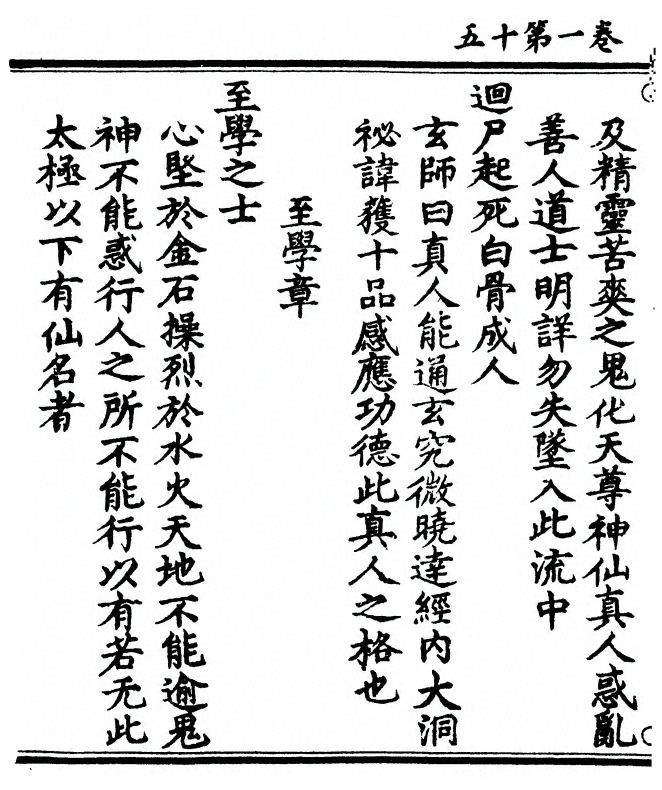 卷一第十五
及精靈苦爽之鬼化天尊神仙真人惑亂
善人道士明詳勿失墜入此流中
迴尸起死白骨成人
玄師曰真人能通玄究微曉達經内大洞
祕諱獲十品感應功德此真人之格也
至學章
至學之士
心堅於金石操烈於水火天地不能逾鬼
神不能惑行人之所不能行以有若无此
太極以下有仙名者